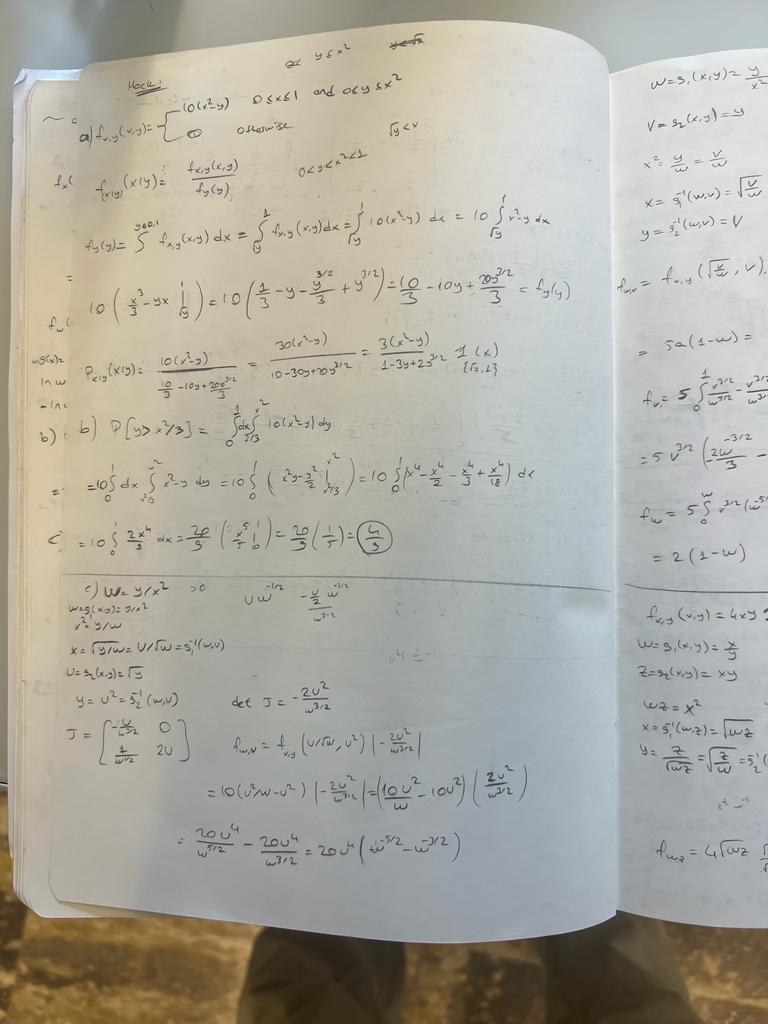 y ≤ x²
Mock:
a) f_{x,y}(x,y) = { 10(x²-y) 0≤x≤1 and 0≤y≤x²
0 otherwise
√y < x
f_{x|y}(x|y) = f_{x,y}(x,y) / f_y(y) 0<y<x²<1
f_y(y) = ∫ f_{x,y}(x,y) dx = ∫_{√y}^{1} f_{x,y}(x,y) dx = ∫_{√y}^{1} 10(x²-y) dx = 10 ∫_{√y}^{1} x²-y dx
=
10 ( x³/3 - yx |_{√y}^{1} ) = 10 ( 1/3 - y - y^{3/2}/3 + y^{3/2} ) = 10/3 - 10y + 20y^{3/2}/3 = f_y(y)
P_{x|y}(x|y) = 10(x²-y) / (10/3 - 10y + 20y^{3/2}/3) = 30(x²-y) / (10-30y+20y^{3/2}) = 3(x²-y) / (1-3y+2y^{3/2}) 1(x) {√y,1}
b) P[y > x²/3] = ∫_0^1 dx ∫_{x²/3}^{x²} 10(x²-y) dy
= 10 ∫_0^1 dx ∫_{x²/3}^{x²} x²-y dy = 10 ∫_0^1 ( x²y - y²/2 |_{x²/3}^{x²} ) = 10 ∫_0^1 ( x⁴ - x⁴/2 - x⁴/3 + x⁴/18 ) dx
= 10 ∫_0^1 2x⁴/9 dx = 20/9 ( x⁵/5 |_0^1 ) = 20/9 (1/5) = 4/9
c) W = y/x² >0
U w^{-1/2} -U/2 w^{-3/2}
w^{3/2}
W = g(x,y) = y/x²
x² = y/w
x = √y/w = U/√w = g_1^{-1}(w,u)
U = g_2(x,y) = √y
y = U² = g_2^{-1}(w,u)
det J = -2U²/w^{3/2}
J = [ -U/w^{3/2} 0
1/w^{1/2} 2U ]
f_{w,u} = f_{x,y}(U/√w, U²) |-2U²/w^{3/2}|
= 10(U²/w - U²) |-2U²/w^{3/2}| = (10U²/w - 10U²) (2U²/w^{3/2})
= 20U⁴/w^{5/2} - 20U⁴/w^{3/2} = 20U⁴ (w^{-5/2} - w^{-3/2})
W = g_1(x,y) = y/x²
V = g_2(x,y) = y
x² = y/w = V/w
x = g_1^{-1}(w,v) = √V/w
y = g_2^{-1}(w,v) = V
f_{w,v} = f_{x,y}(√V/w, V).
= 5a(1-w) =
f_v = 5 ∫_0^1 v^{3/2}/w^{5/2} - v^{3/2}/w^{3/2}
= 5 v^{3/2} ( -2w^{-3/2}/3 -
f_w = 5 ∫_0^w v^{3/2}(w^{-5/2}
= 2(1-w)
f_{x,y}(x,y) = 4xy
W = g_1(x,y) = x/y
Z = g_2(x,y) = xy
WZ = x²
x = g_1^{-1}(w,z) = √wz
y = z/√wz = √z/w = g_2^{-1}(
f_{w,z} = 4√wz